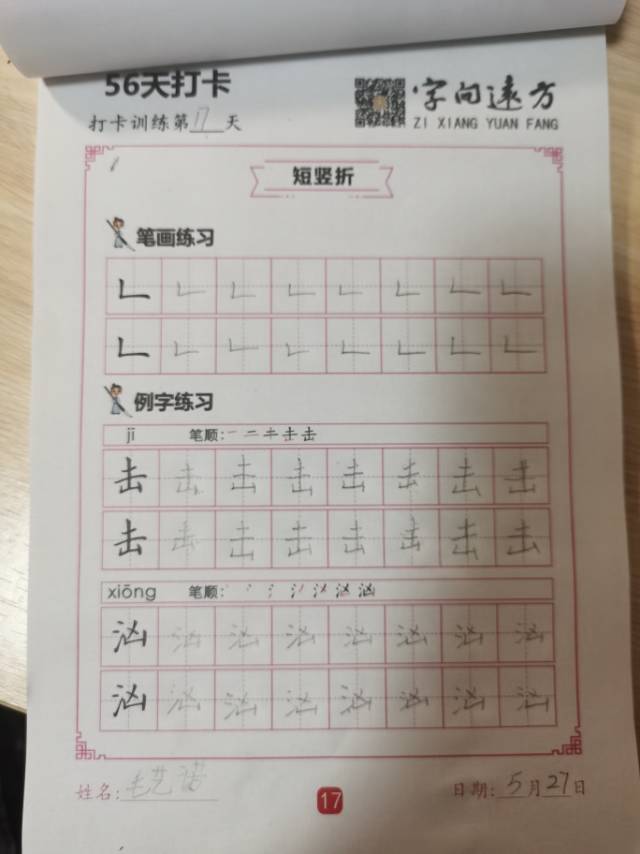 56天打卡
字向远方
打卡训练第17天
ZI XIANG YUAN FANG
短竖折
笔画练习
𠃊 𠃊 𠃊 𠃊 𠃊 𠃊 𠃊 𠃊
𠃊 𠃊 𠃊 𠃊 𠃊 𠃊 𠃊 𠃊
例字练习
jī 笔顺:一 二 キ 击 击
击 击 击 击 击 击 击 击
击 击 击 击 击 击 击 击
xiōng 笔顺:
汹 汹 汹 汹 汹 汹 汹 汹
汹 汹 汹 汹 汹 汹 汹 汹
姓名:毛艺诺 日期:5月27日
17